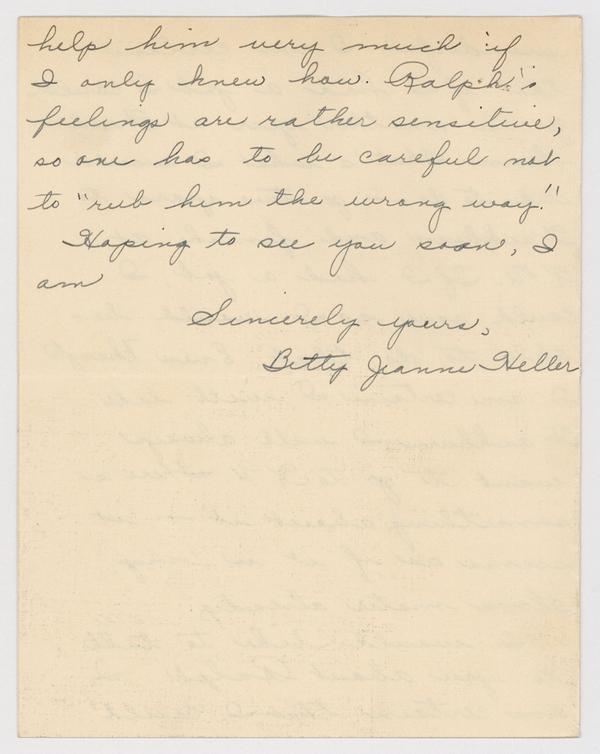 help him very much if
I only knew how. Ralph's
feelings are rather sensitive,
so one has to be careful not
to "rub him the wrong way."
Hoping to see you soon, I
am
Sincerely yours,
Betty Jeanne Heller